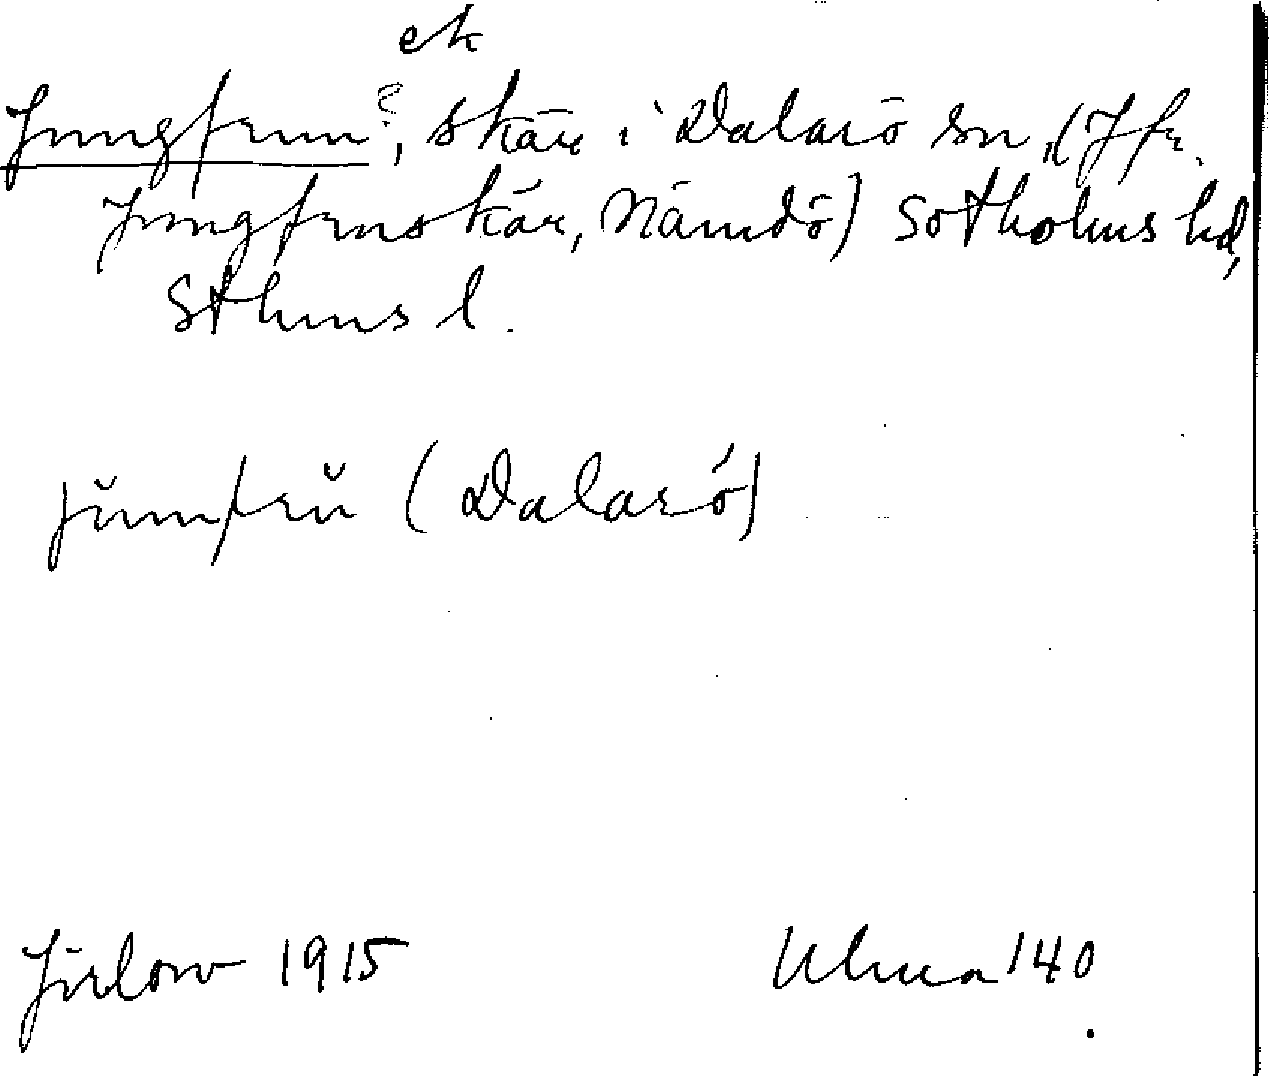 ek
Jungfrun?, skär i Dalarö sn, (Jfr.
Jungfruskär, Nämdö) Sotholms hd,
Sthms l.
jŭmfrŭ (Dalarö)
Jirlow 1915
Ulma 140